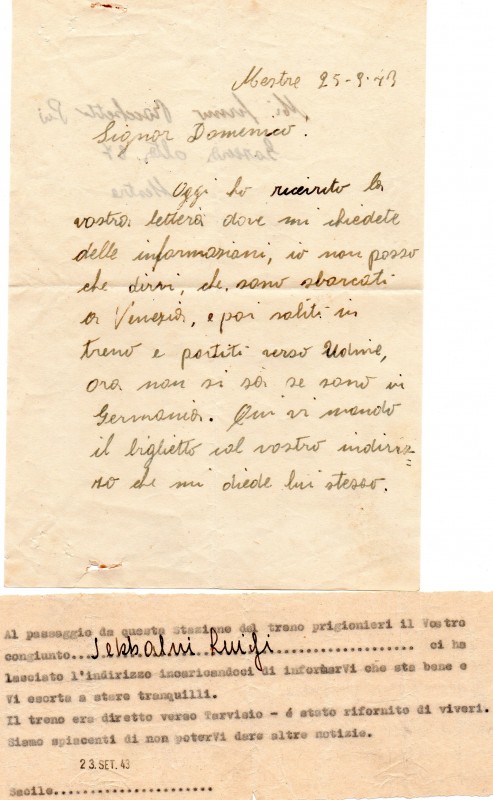 Mestre 25-9-43
Signor Domenico.
Oggi ho ricevuto la
vostra lettera dove mi chiedete
delle informazioni, io non posso
che dirvi, che sono sbarcati
a Venezia, e poi saliti in
treno e partiti verso Udine,
ora non si sà se sono in
Germania. Qui vi mando
il biglietto col vostro indiriz=
zo che mi diede lui stesso.
Al passaggio da questa stazione del treno prigionieri il Vostro
congiunto... Luigi ... ci ha
lasciato l'indirizzo incaricandoci di informarVi che sta bene e
Vi esorta a stare tranquilli.
Il treno era diretto verso Tarvisio - é stato rifornito di viveri.
Siamo spiacenti di non poterVi dare altre notizie.
23. SET. 43
Sacile......................